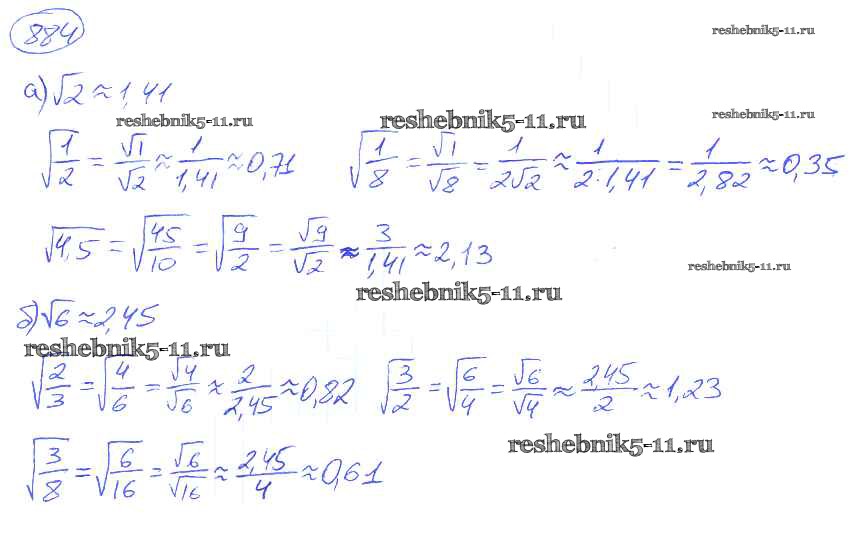 884
reshebnik5-11.ru
а) √2 ≈ 1,41
reshebnik5-11.ru reshebnik5-11.ru reshebnik5-11.ru
√(1/2) = √1/√2 ≈ 1/1,41 ≈ 0,71 √(1/8) = √1/√8 = 1/(2√2) ≈ 1/(2·1,41) = 1/2,82 ≈ 0,35
√4,5 = √(45/10) = √(9/2) = √9/√2 ≈ 3/1,41 ≈ 2,13
reshebnik5-11.ru
reshebnik5-11.ru
б) √6 ≈ 2,45
reshebnik5-11.ru
√(2/3) = √(4/6) = √4/√6 ≈ 2/2,45 ≈ 0,82 √(3/2) = √(6/4) = √6/√4 ≈ 2,45/2 ≈ 1,23
reshebnik5-11.ru
√(3/8) = √(6/16) = √6/√16 ≈ 2,45/4 ≈ 0,61